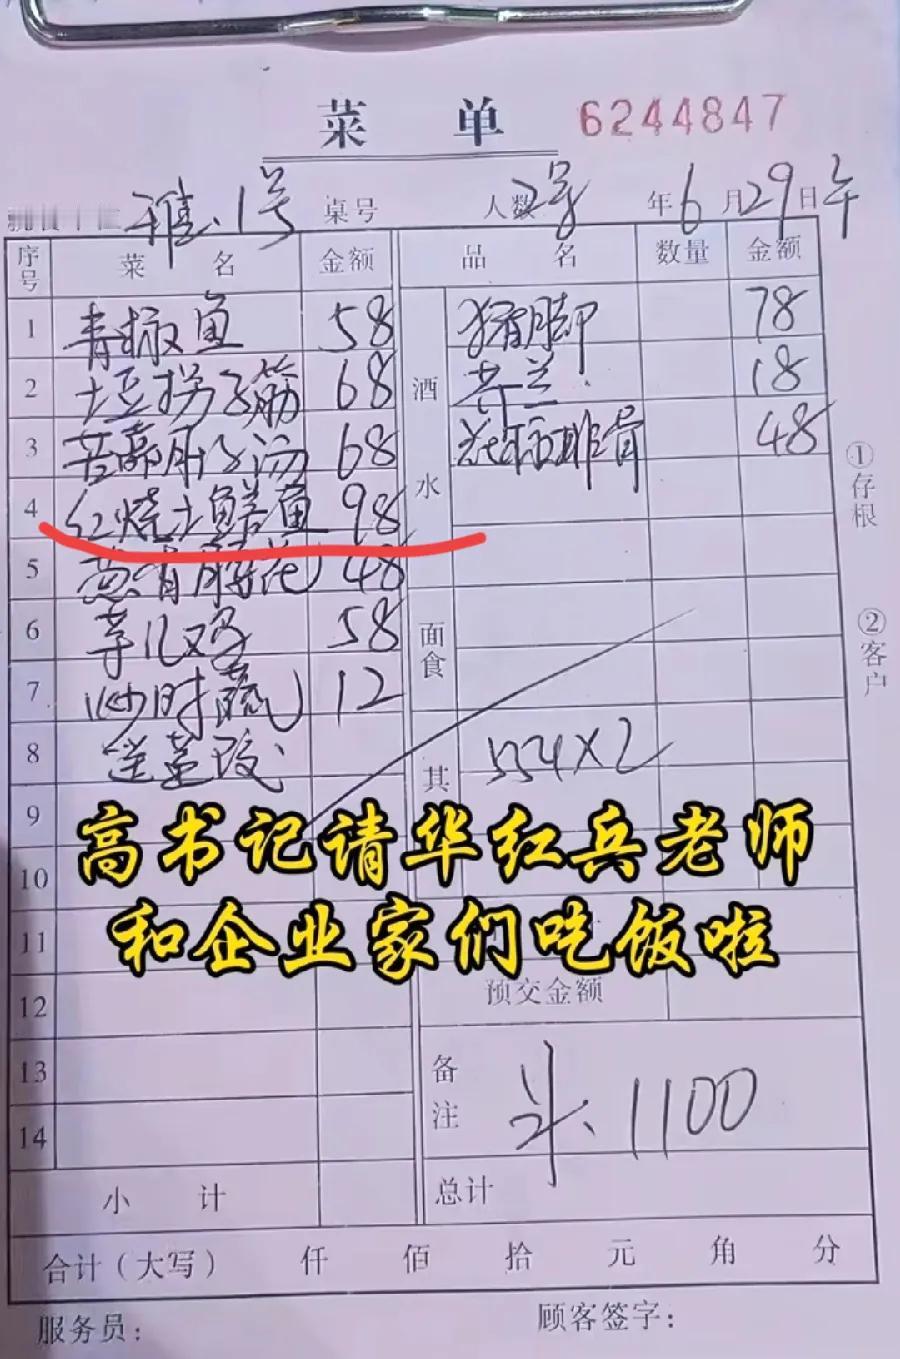 菜 单 6244847
雅.1号 桌号 人数 2号 年6月29日午
序号 菜 名 金额 品 名 数量 金额
1 青椒鱼 58 猪脚 78
2 土豆拐子筋 68 酒 芥兰 18
3 肚子汤 68 排骨 48
4 红烧土鲫鱼 98 水
5 葱背腰花 48
6 芋儿鸡 58 面食
7 炒时蔬 12
8 其 554×2
9
高书记请华红兵老师
10
和企业家们吃饭啦
11
12 预交金额
13 备注 斗、1100
14
小 计 总计
合计（大写） 仟 佰 拾 元 角 分
服务员： 顾客签字：
①存根
②客户